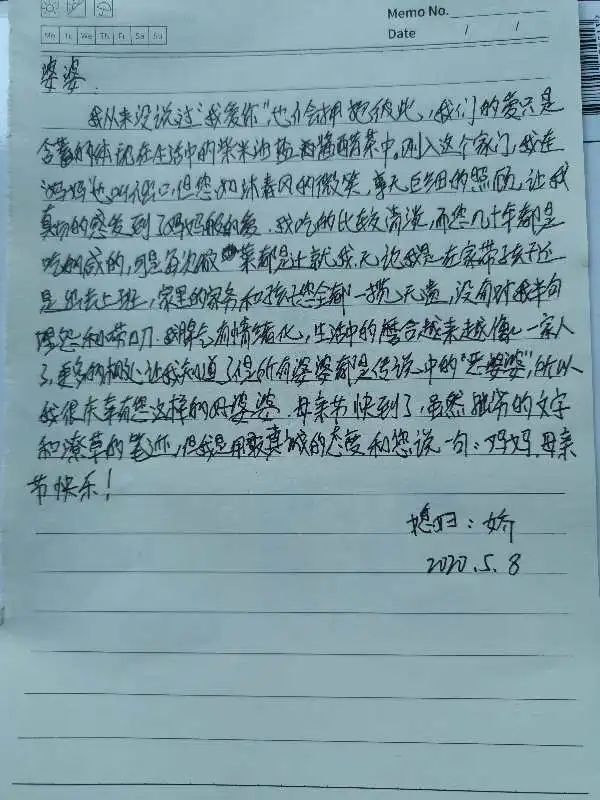 Memo No.
Mo Tu We Th Fr Sa Su
Date / /
婆婆
我从来没说过"我爱你"也不会拥抱彼此，我们的爱只是
含蓄的体现在生活中的柴米油盐酱醋茶中。刚入这个家门，我连
"妈妈"也叫不出口，但您如沐春风的微笑，事无巨细的照顾，让我
真切的感受到了妈妈般的爱。我吃的比较清淡，而您几十年都是
吃的咸的，可是每次做菜都是迁就我，无论我是在家带孩子还
是出去上班，家里的家务和孩子您全都一揽无遗，没有对我半句
埋怨和唠叨。我脾气有情绪化，生活中的磨合越来越像一家人
了，更多的相处让我知道了不是所有婆婆都是传说中的"恶婆婆"，所以
我很庆幸有您这样的好婆婆。母亲节快到了，虽然拙劣的文字
和潦草的笔迹，但我是用最真诚的态度和您说一句：妈妈，母亲
节快乐！
媳妇：娇
2020.5.8